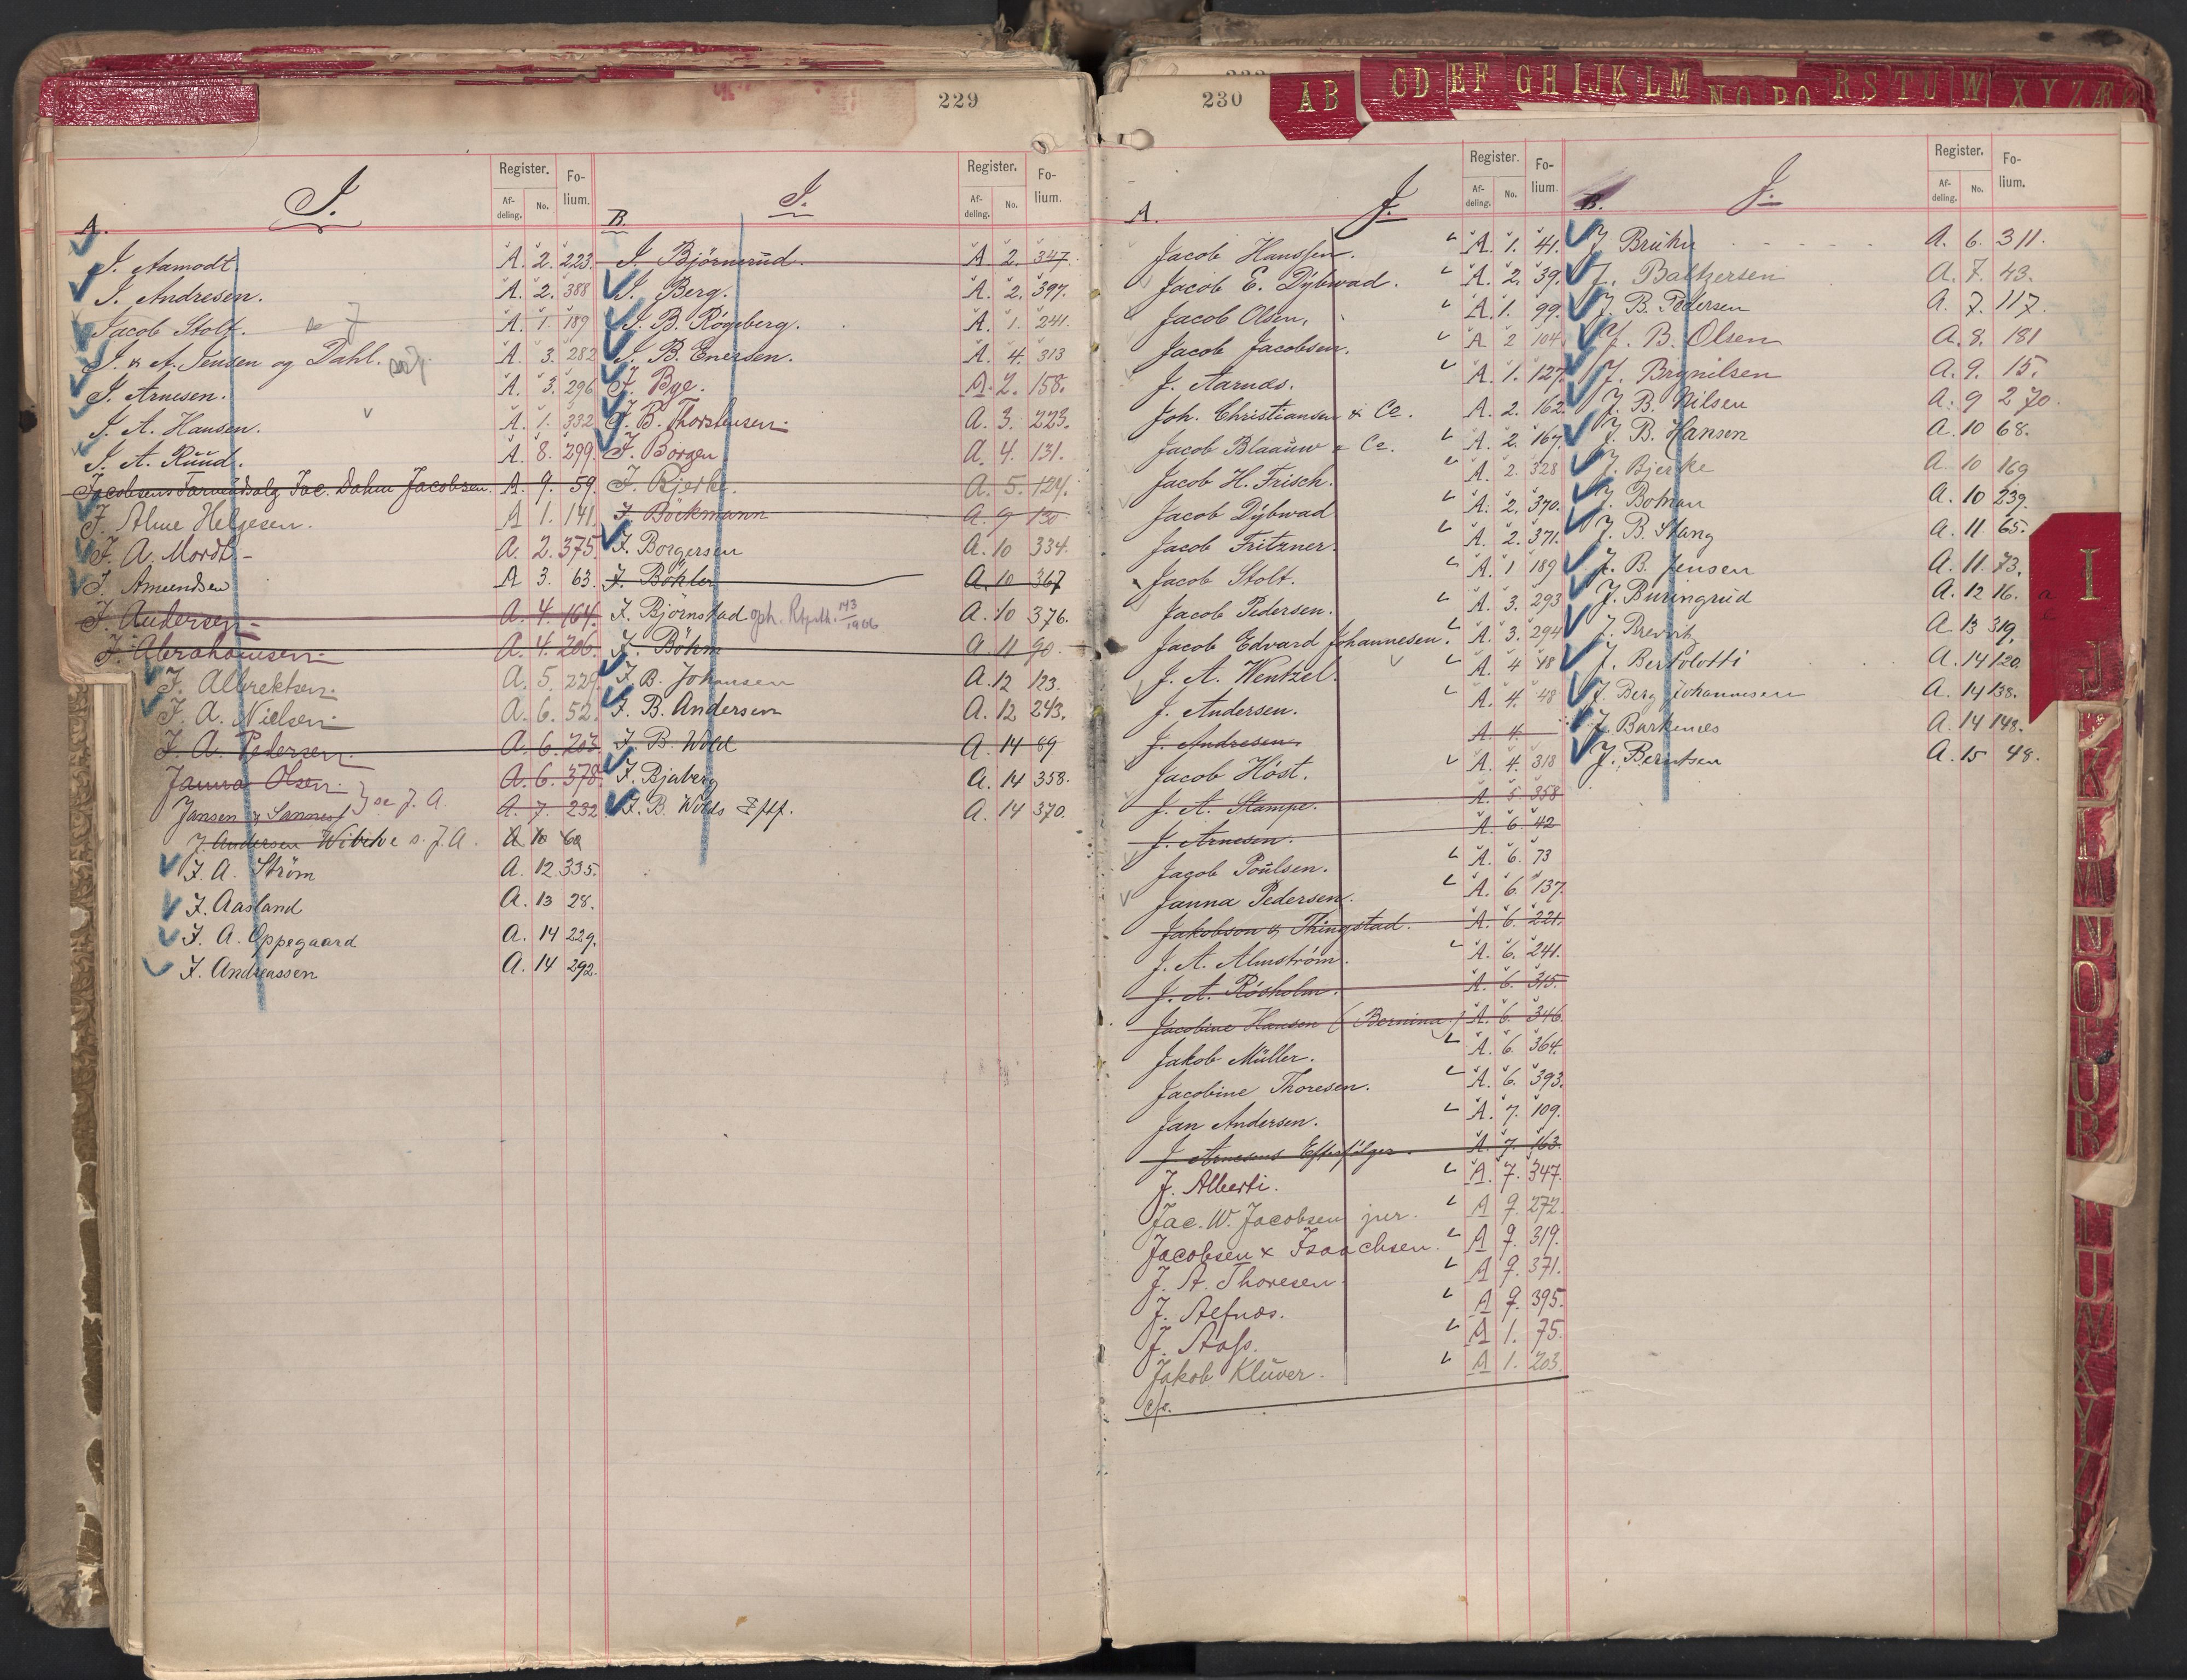 229
I.
Register. Folium.
Afdeling. No.
A.
I. Aamodt. A. 2. 223.
I. Andresen. A. 2. 388
Jacob Stolt. se J A. 1. 189
I. & A. Jensen og Dahl. A. 3. 282
I. Arnesen. A. 3. 296
I. A. Hansen. A. 1. 332
I. A. Ruud. A. 8. 299.
Jacobsens Farveudsalg Jac. Dahm Jacobsen. A. 9. 59.
J. Alme Helgesen. A 1. 141
J. A. Mordt A. 2. 375.
J. Amundsen A 3. 63.
J. Andersen A. 4. 164.
J. Abrahamsen A. 4. 206.
J. Albrektsen A. 5. 229.
J. A. Nielsen A. 6. 52.
J. A. Pedersen A. 6. 203.
Janna Olsen A. 6. 378.
Jansen & Sannes se J. A. A. 7. 232
J. Andersen Wibike s. J. A. A 10 60
J. A. Ström A. 12 335.
J. Aasland A. 13 28.
J. A. Oppegaard A. 14 229.
J. Andreassen A. 14 292.
I.
Register. Folium.
Afdeling. No.
B.
I. Björnerud. A 2. 347.
I. Berg. A. 2. 397.
I. B. Rögeberg. A. 1. 241.
I. B. Enersen. A. 4. 313
J. Bye. A. 2. 158.
J. B. Thorstensen. A. 3. 223.
J. Borgen A. 4. 131.
J. Bjerke. A. 5. 124.
J. Böckmann A. 9 130
J. Borgersen A. 10 334.
J. Böhler A. 10 367
J. Björnstad oph. 14/3 1906 A. 10 376.
J. Böhm A. 11 90
J. B. Johansen A. 12 123.
J. B. Andersen A. 12 243.
J. B. Wold A. 14 89
J. Bjaberg A. 14 358.
J. B. Wolds Eftf. A. 14 370.
230
AB CD EF GH IJK LM NO PQ RS TU W XYZÆ
J.
Register. Folium.
Afdeling. No.
A.
Jacob Hanssen. A. 1. 41.
Jacob E. Dybwad. A. 2. 39.
Jacob Olsen. A. 1. 99.
Jacob Jacobsen. A 2 104.
J. Aarnæs. A. 1. 127.
Joh. Christiansen & Co. A. 2. 162.
Jacob Blaauw & Co. A. 2. 167.
Jacob H. Frisch. A. 2. 328
Jacob Dybwad A. 2. 370.
Jacob Fritzner. A. 2. 371.
Jacob Stolt. A. 1 189
Jacob Pedersen. A. 3. 293
Jacob Edvard Johannesen. A. 3. 294
J. A. Wentzel. A. 4 48
J. Andersen. A. 4. 48
J. Andresen. A. 4.
Jacob Höst. A. 4. 318
J. A. Stampe. A. 5 358
J. Arnesen. A. 6. 42
Jacob Poulsen. A. 6. 73
Janna Pedersen. A. 6. 137.
Jakobson & Thingstad. A. 6. 221.
J. A. Almström. A. 6. 241.
J. A. Rösholm. A. 6. 315.
Jacobine Hansen (Bernina.) A. 6. 346.
Jakob Müller. A. 6. 364.
Jacobine Thoresen. A. 6. 393.
Jan Andersen. A. 7. 109.
J. Arnesens Efterfölger. A. 7. 163.
J. Alberti. A. 7. 347.
Jac. W. Jacobsen jur. A 9. 272.
Jacobsen & Isaachsen. A 9. 319.
J. A. Thoresen. A 9. 371.
J. Alfnæs. A 9. 395.
J. Aass. A 1. 75.
Jakob Klüver. A 1. 203.
J.
Register. Folium.
Afdeling. No.
B.
J. Bruhn A. 6. 311.
J. Baltzersen A. 7. 43.
J. B. Pedersen A. 7. 117.
J. B. Olsen A. 8. 181
J. Brynilsen A. 9. 15.
J. B. Nilsen A. 9 270.
J. B. Hansen A. 10 68.
J. Bjerke A 10 169
J. Boman A. 10 239.
J. B. Stang A. 11. 65.
J. B. Jensen A. 11. 73.
J. Buringrud A. 12 16.
J. Brevitz A 13 319.
J. Bertolotti A. 14 120.
J. Berg Johannesen A. 14 138.
J. Barkenes A. 14 148.
J. Berntsen A. 15 48.
I
J
K
L
M
N
O